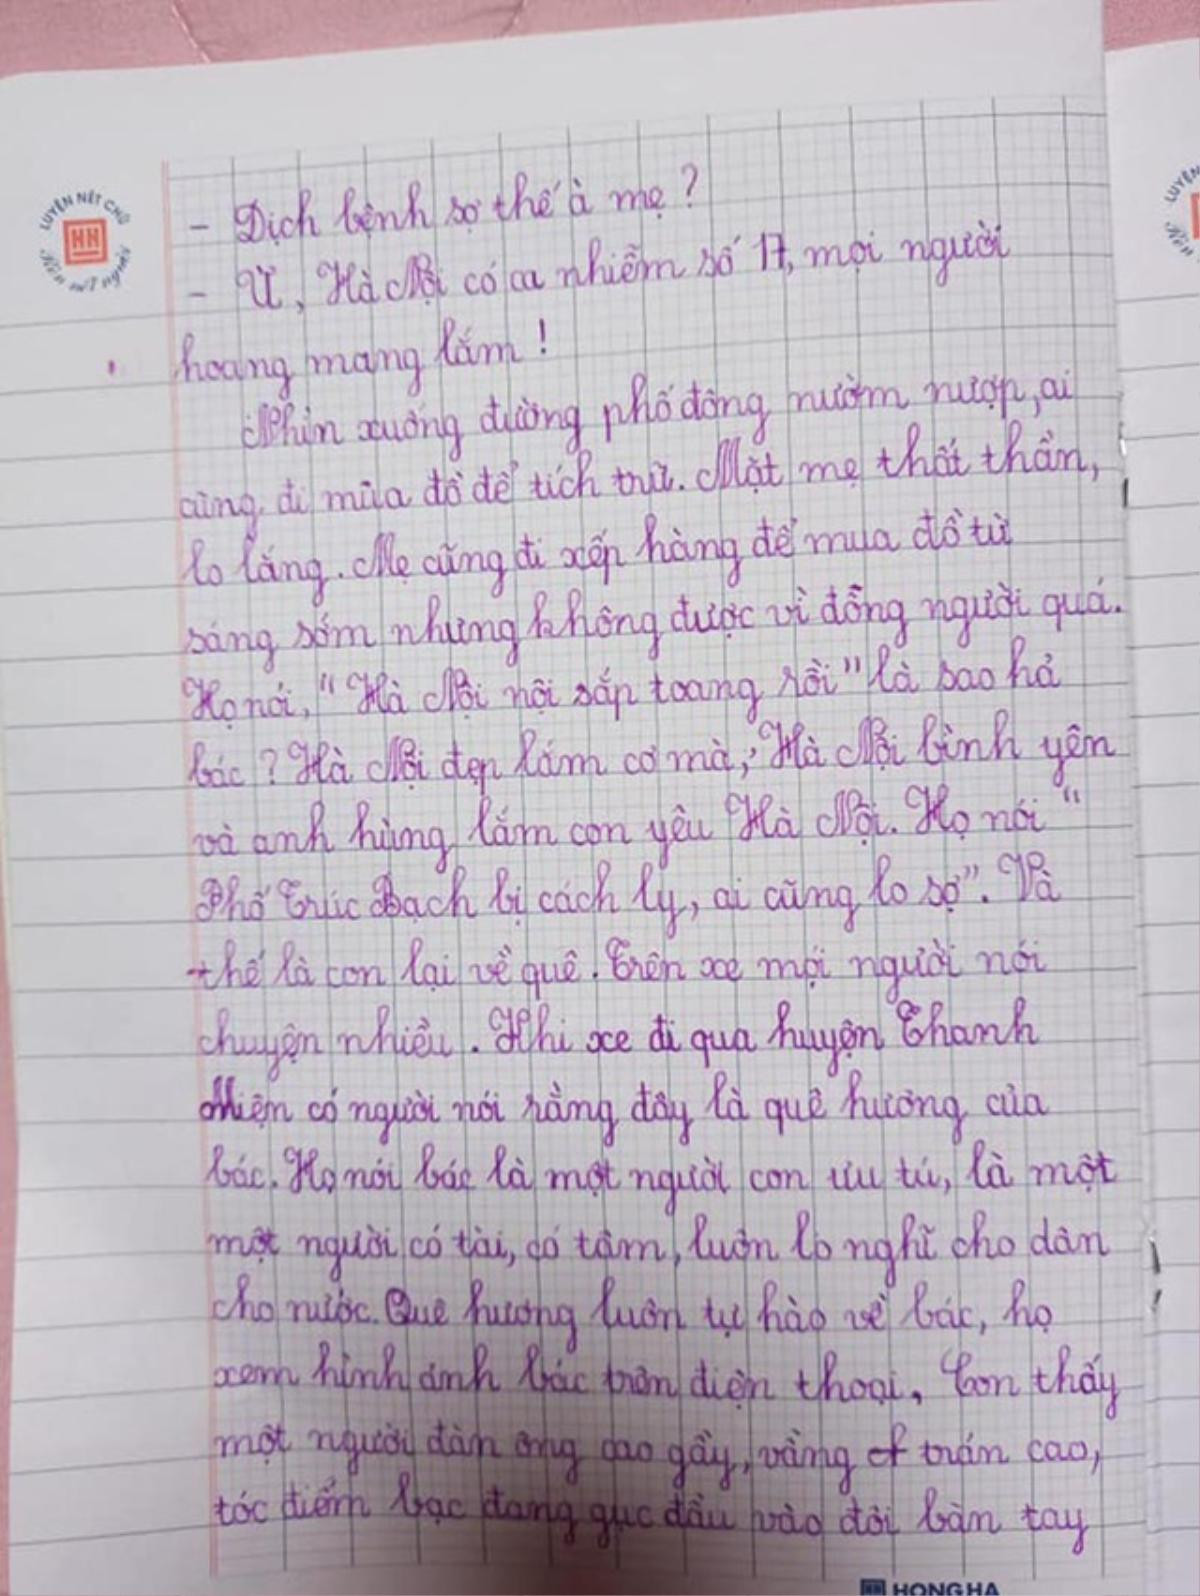 LUYỆN NÉT CHỮ
HH
Rèn nết người
LUYỆN
- Dịch bệnh sợ thế à mẹ?
- Ừ, Hà Nội có ca nhiễm số 17, mọi người
hoang mang lắm!
Nhìn xuống đường phố đông nườm nượp, ai
cũng đi mua đồ để tích trữ. Mặt mẹ thất thần,
lo lắng. Mẹ cũng đi xếp hàng để mua đồ từ
sáng sớm nhưng không được vì đông người quá.
Họ nói, "Hà Nội nội sắp toang rồi" là sao hả
bác? Hà Nội đẹp lắm cơ mà, Hà Nội bình yên
và anh hùng lắm con yêu Hà Nội. Họ nói "
Phố Trúc Bạch bị cách ly, ai cũng lo sợ". Và
thế là con lại về quê. Trên xe mọi người nói
chuyện nhiều. Khi xe đi qua huyện Thanh
Miện có người nói rằng đây là quê hương của
bác. Họ nói bác là một người con ưu tú, là một
một người có tài, có tâm, luôn lo nghĩ cho dân
cho nước. Quê hương luôn tự hào về bác, họ
xem hình ảnh bác trên điện thoại. Con thấy
một người đàn ông cao gầy, vầng trán cao,
tóc điểm bạc đang gục đầu vào đôi bàn tay
HH HONG HA